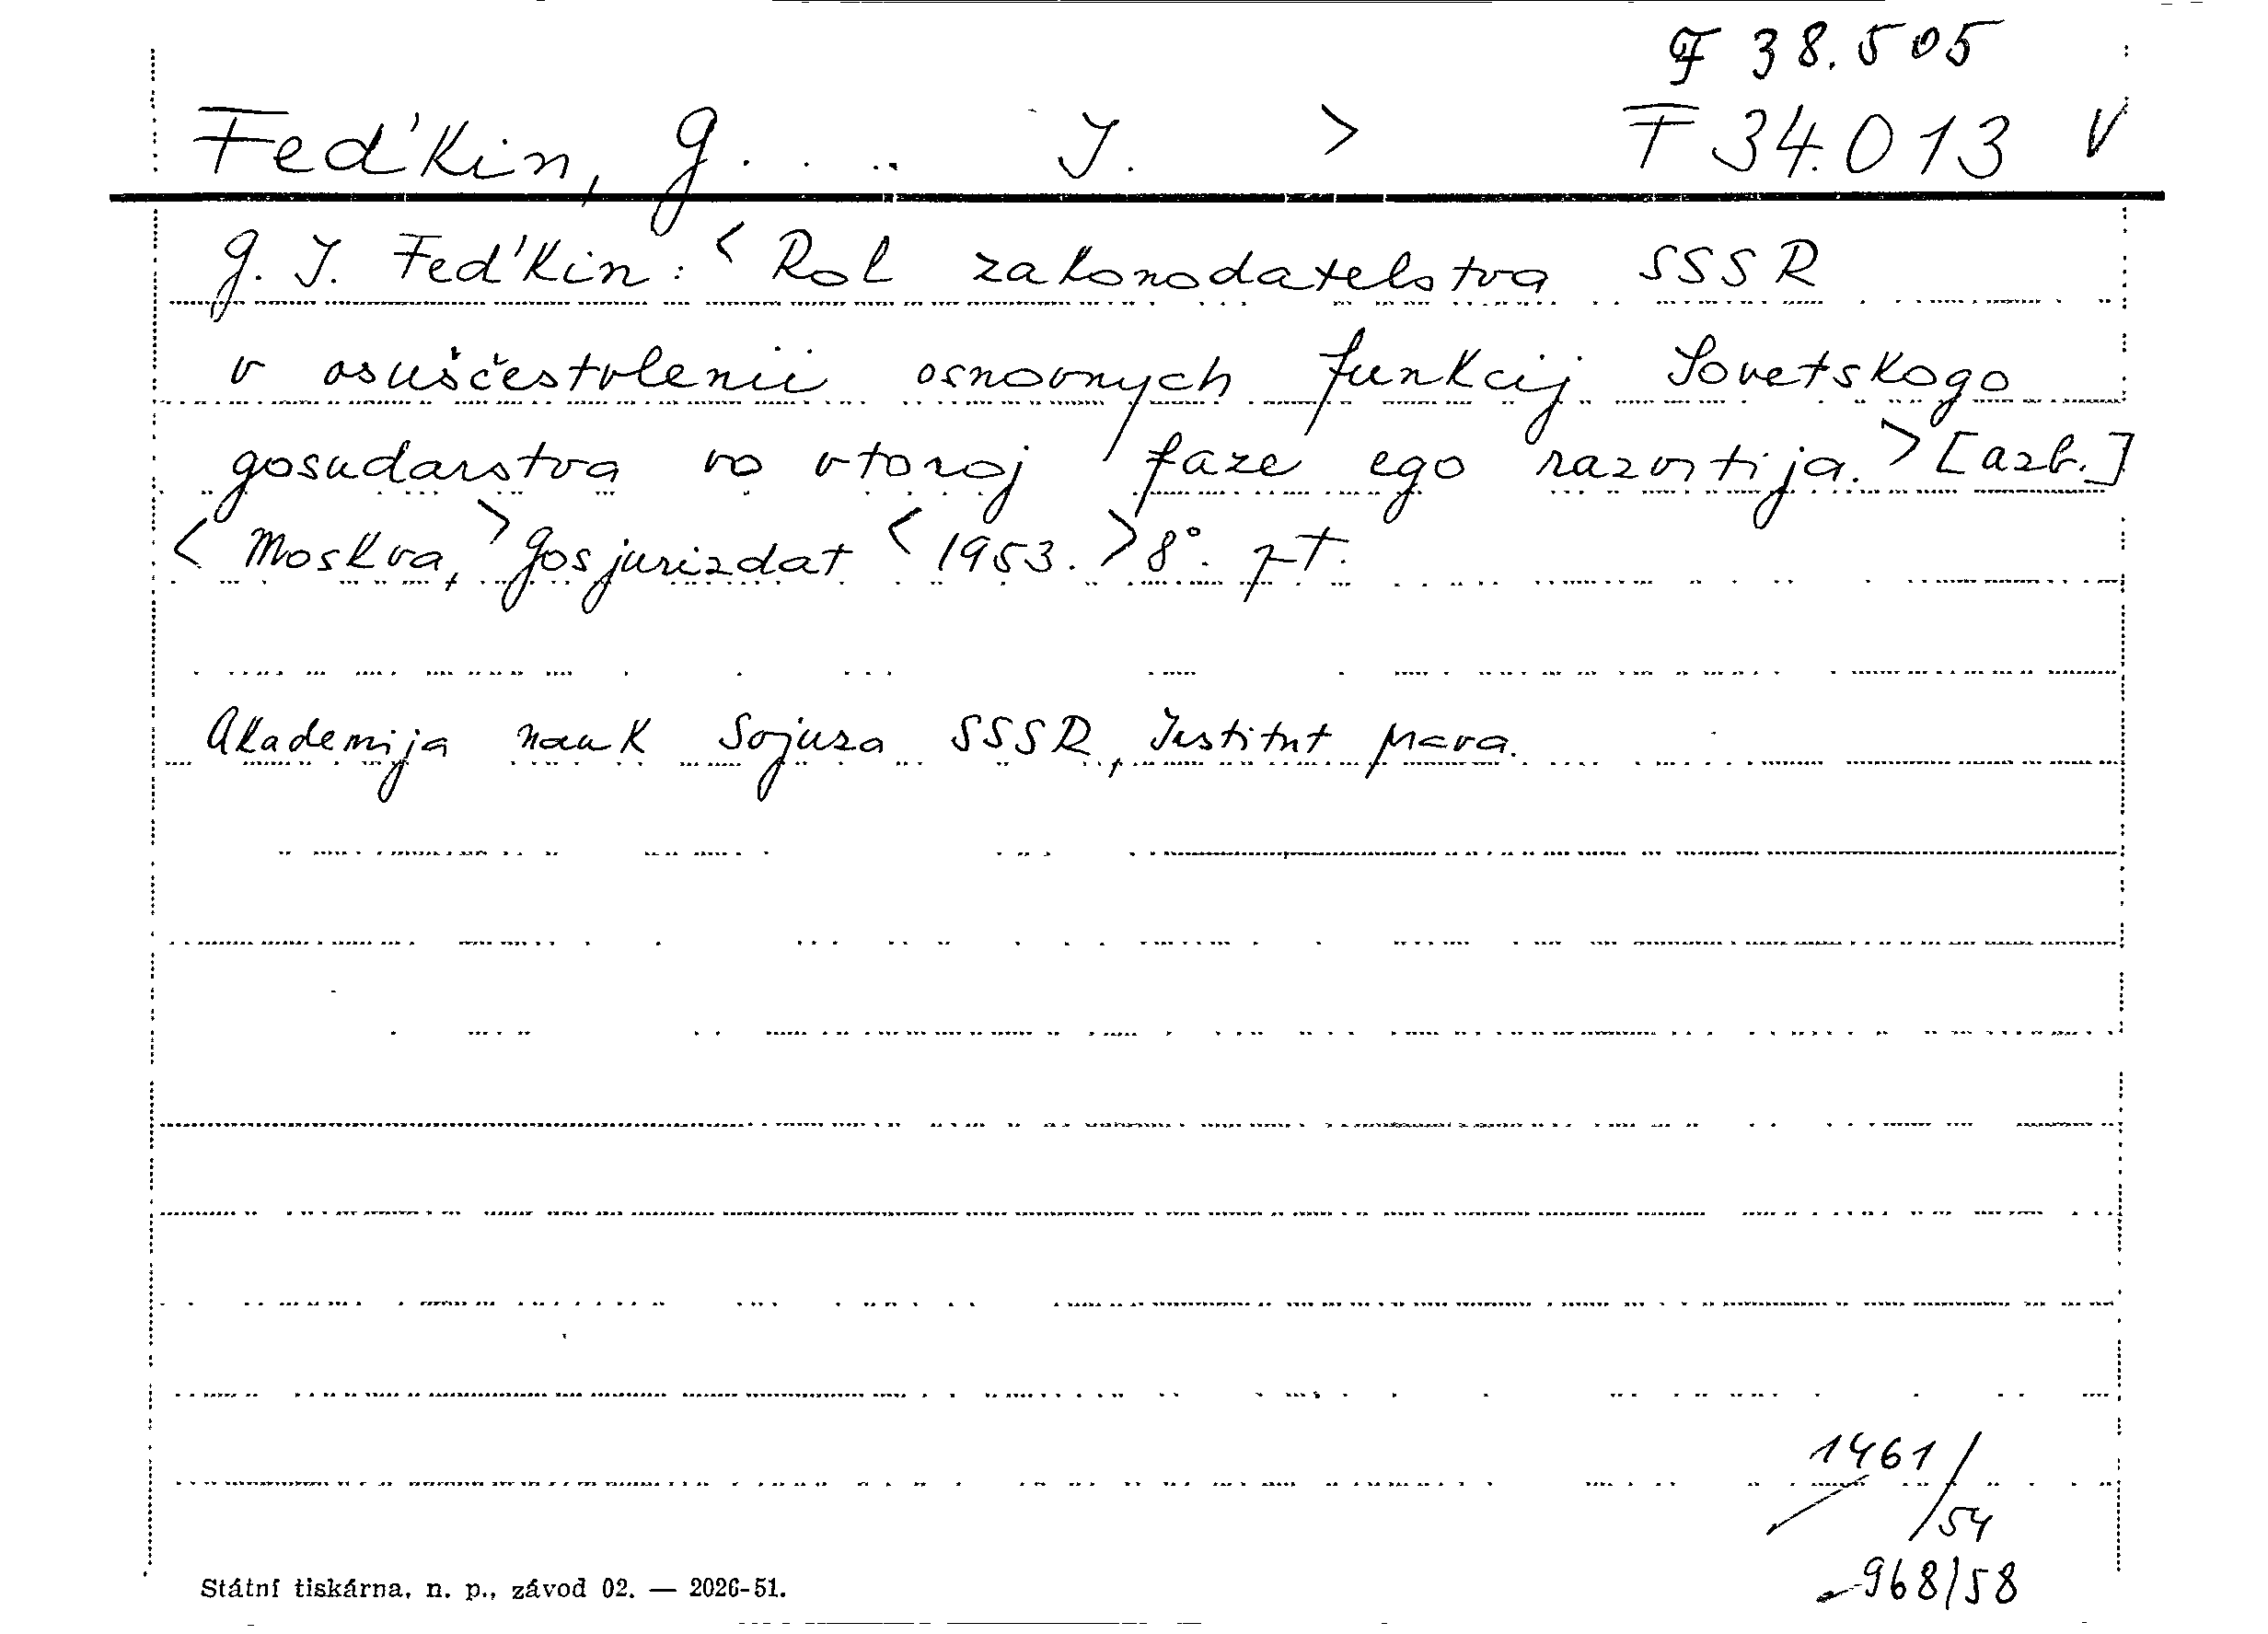 F 38.505
Feď'kin, G. . .. I. > F 34.013 V
G. I. Feď'kin: < Rol zakonodatelstva SSSR
v osuščestvlenii osnovnych funkcij Sovetskogo
gosudarstva vo vtoroj faze ego razvitija. > [azb.]
< Moskva, > Gosjurizdat < 1953. > 8°. pt.
Akademija nauk Sojuza SSSR, Institut prava.
1461/
/54
968/58
Státní tiskárna, n. p., závod 02. — 2026-51.